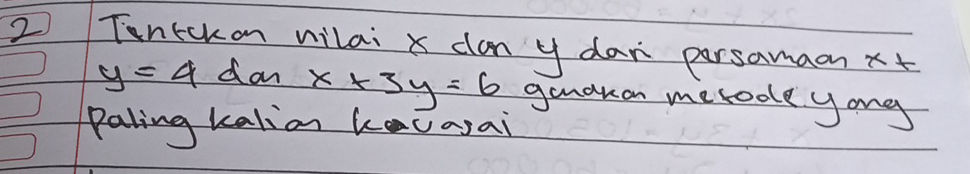 2 Tentukan nilai x dan y dari persamaan x +
y = 4 dan x + 3y = 6 gunakan metode yang
paling kalian kuasai